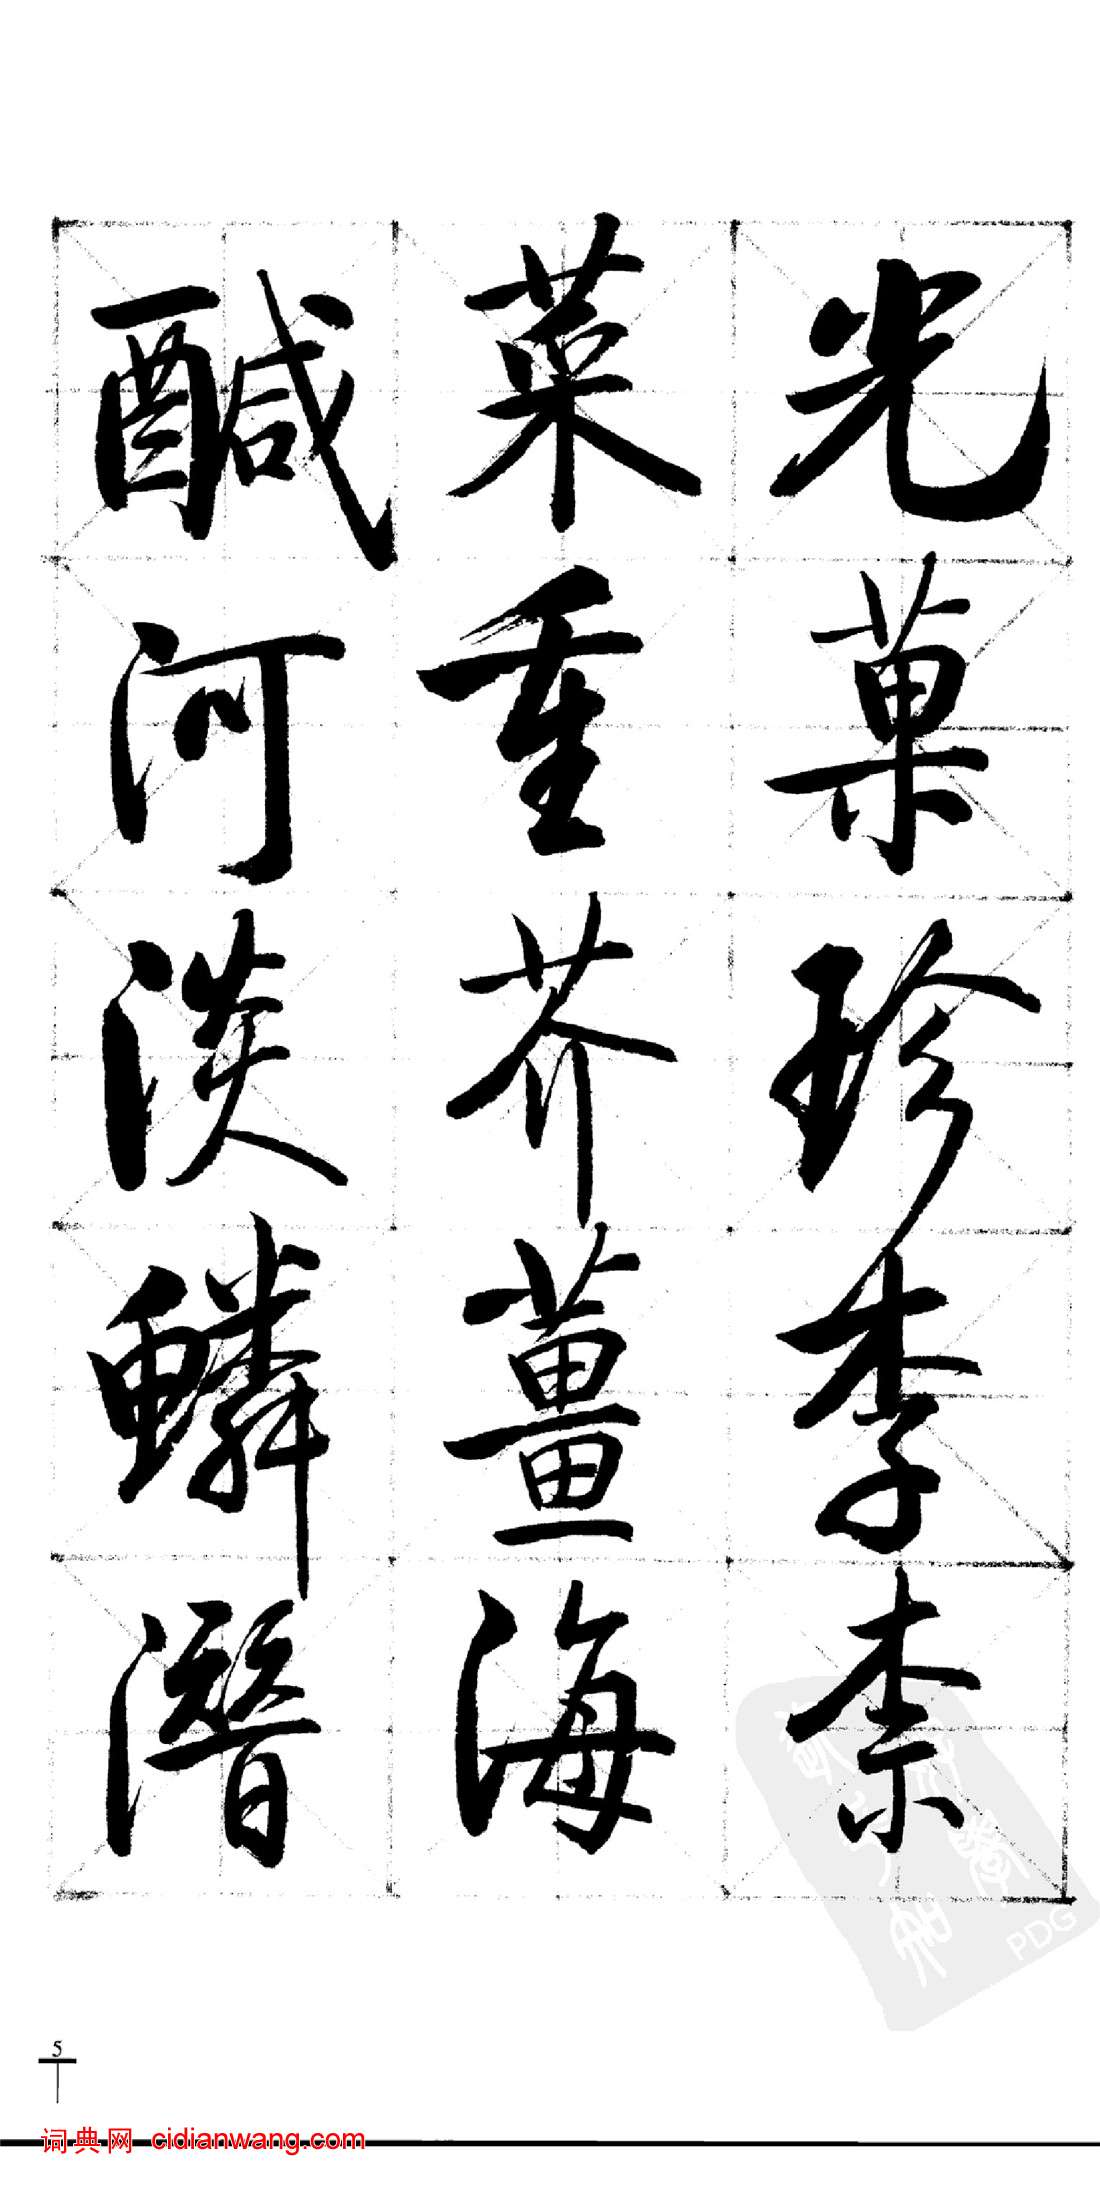 光菓珍李柰
菜重芥薑海
醎河淡鱗潛
5
词典网 cidianwang.com
PDG